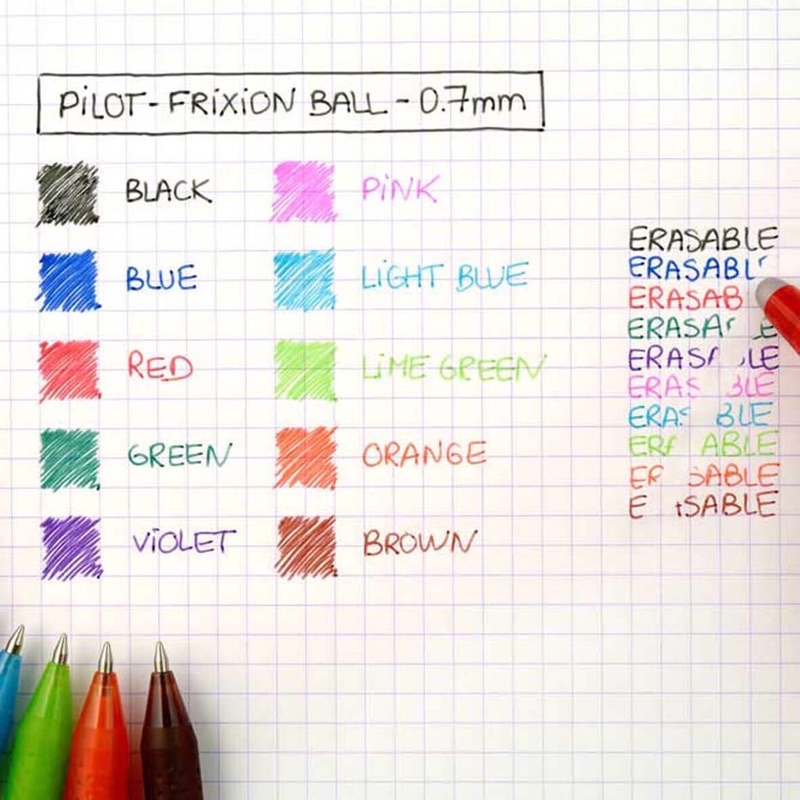 PiLOT - FRiXiON BALL - 0.7mm
BLACK
BLUE
RED
GREEN
ViOLET
PiNK
LiGHT BLUE
LiME GREEN
ORANGE
BROWN
ERASABLE
ERASABL
ERASAB
ERASA E
ERAS LE
ERAS BLE
ERAS BLE
ER ABLE
ER SABLE
E SABLE